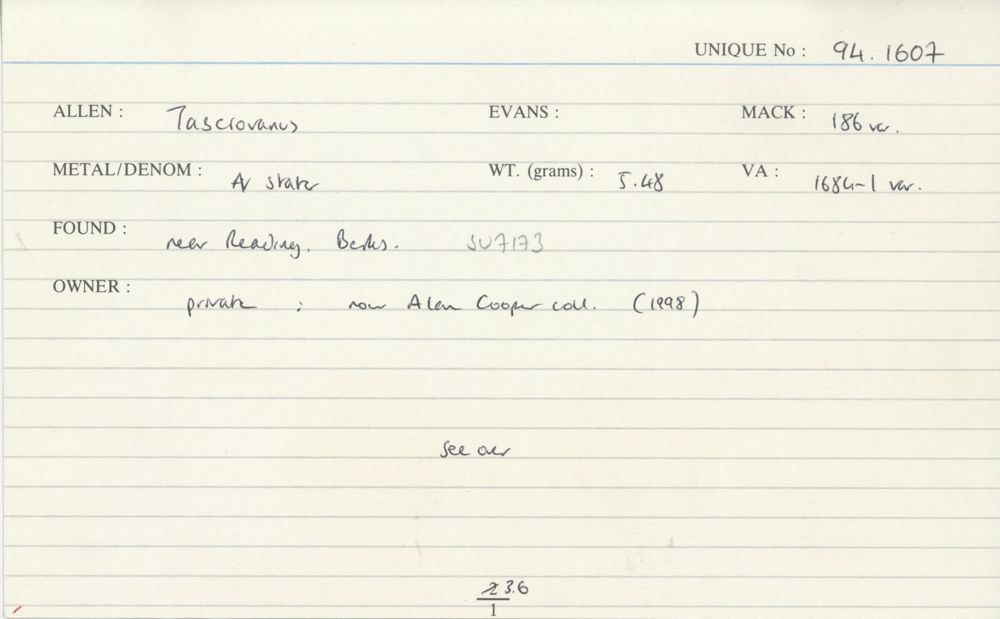 UNIQUE No : 94.1607
ALLEN : Tasciovanus EVANS : MACK : 186 var.
METAL/DENOM : AV stater WT. (grams) : 5.48 VA : 1684-1 var.
FOUND : near Reading, Berks. SU7173
OWNER : private ; now Alan Cooper coll. (1998)
see over
3.6
1